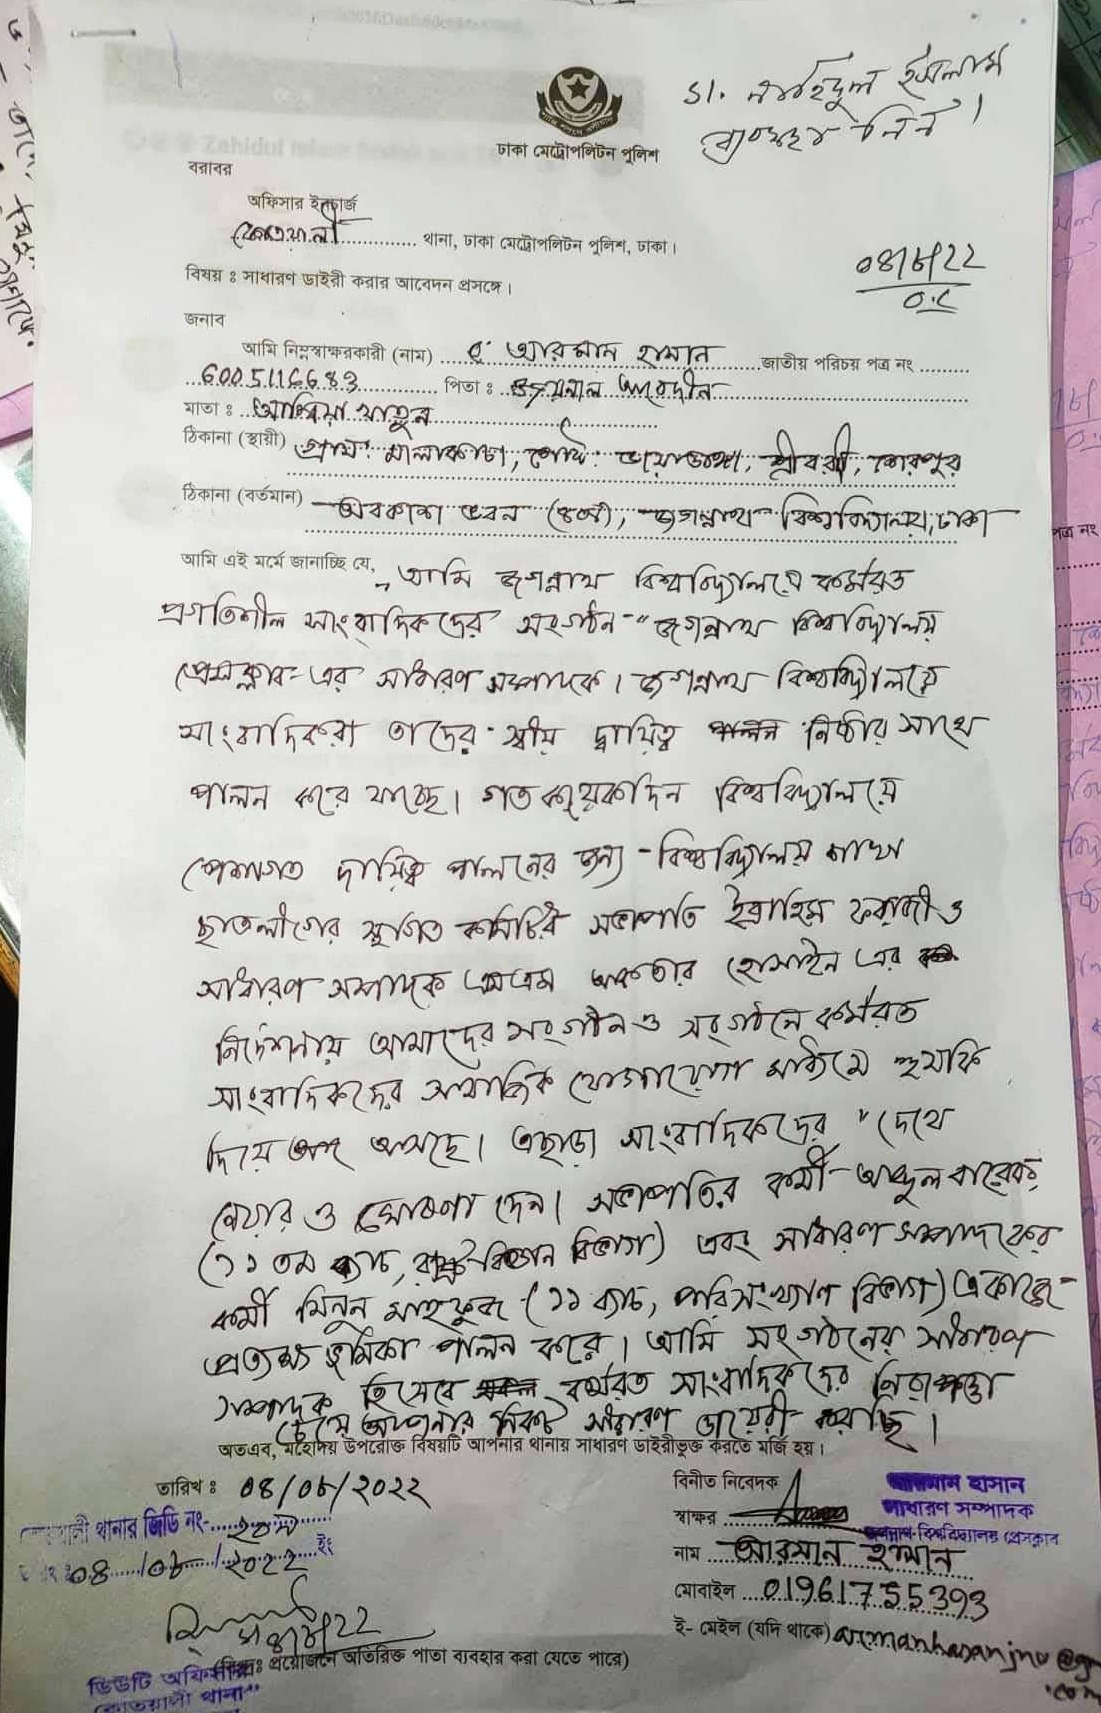 SI. নাহিদুল ইসলাম
ব্যবস্থা নিন।
ঢাকা মেট্রোপলিটন পুলিশ
বরাবর
অফিসার ইনচার্জ
কোতয়ালী থানা, ঢাকা মেট্রোপলিটন পুলিশ, ঢাকা।
০৪/৮/২২
বিষয় ঃ সাধারণ ডাইরী করার আবেদন প্রসঙ্গে।
জনাব
আমি নিম্নস্বাক্ষরকারী (নাম) আরমান হাসান জাতীয় পরিচয় পত্র নং
6005116683 পিতা ঃ জয়নাল আবেদীন
মাতা ঃ খাতুন
ঠিকানা (স্থায়ী) গ্রাম: মালাকোচা, পোষ্ট: ভায়াডাঙ্গা, শ্রীবরদী, শেরপুর
ঠিকানা (বর্তমান) অবকাশ ভবন জগন্নাথ বিশ্ববিদ্যালয়, ঢাকা
আমি এই মর্মে জানাচ্ছি যে, আমি জগন্নাথ বিশ্ববিদ্যালয়ে কর্মরত
প্রগতিশীল সাংবাদিকদের সংগঠন "জগন্নাথ বিশ্ববিদ্যালয়
প্রেসক্লাব- এর সাধারণ সম্পাদক। জগন্নাথ বিশ্ববিদ্যালয়ে
সাংবাদিকরা তাদের স্বীয় দ্বায়িত্ব নিষ্ঠার সাথে
পালন করে যাচ্ছে। গত কয়েকদিন বিশ্ববিদ্যালয়ে
পেশাগত দায়িত্ব পালনের জন্য বিশ্ববিদ্যালয় শাখা
ছাত্রলীগের স্থগিত কমিটির সভাপতি ইব্রাহিম ফরাজী ও
সাধারণ সম্পাদক এসএম আকতার হোসাইন এর
নির্দেশনায় আমাদের সংগঠন ও সংগঠনে কর্মরত
সাংবাদিকদের সামাজিক যোগাযোগ মাধ্যমে হুমকি
দিয়ে আসছে। এছাড়া সাংবাদিকদের "দেখে
নেয়ার ও ঘোষণা দেন। সভাপতির কর্মী আব্দুল বারেক,
(১১ তম ব্যাচ, রাষ্ট্রবিজ্ঞান বিভাগ) এবং সাধারণ সম্পাদকের
কর্মী মিনুন মাহফুজ (১১ ব্যাচ, পরিসংখ্যাণ বিভাগ) একাজে
প্রত্যক্ষ ভূমিকা পালন করে। আমি সংগঠনের সাধারণ
সম্পাদক হিসেবে কর্মরত সাংবাদিকদের নিরাপত্তা
চেয়ে আপনার নিকট সাধারণ ডায়েরী করছি।
অতএব, মহোদয় উপরোক্ত বিষয়টি আপনার থানায় সাধারণ ডাইরীভুক্ত করতে মর্জি হয়।
তারিখ ঃ ০৪/০৮/২০২২
বিনীত নিবেদক
আরমান হাসান
সাধারণ সম্পাদক
জগন্নাথ বিশ্ববিদ্যালয় প্রেসক্লাব
স্বাক্ষর
কোতয়ালী থানার জিডি নং-
০৪/০৮/২০২২ ইং
নাম আরমান হাসান
মোবাইল 01961755393
ই- মেইল (যদি থাকে) armanhasanjnu@g
.com
(বিঃদ্রঃ প্রয়োজনে অতিরিক্ত পাতা ব্যবহার করা যেতে পারে)
ডিউটি অফিসার
কোতয়ালী থানা